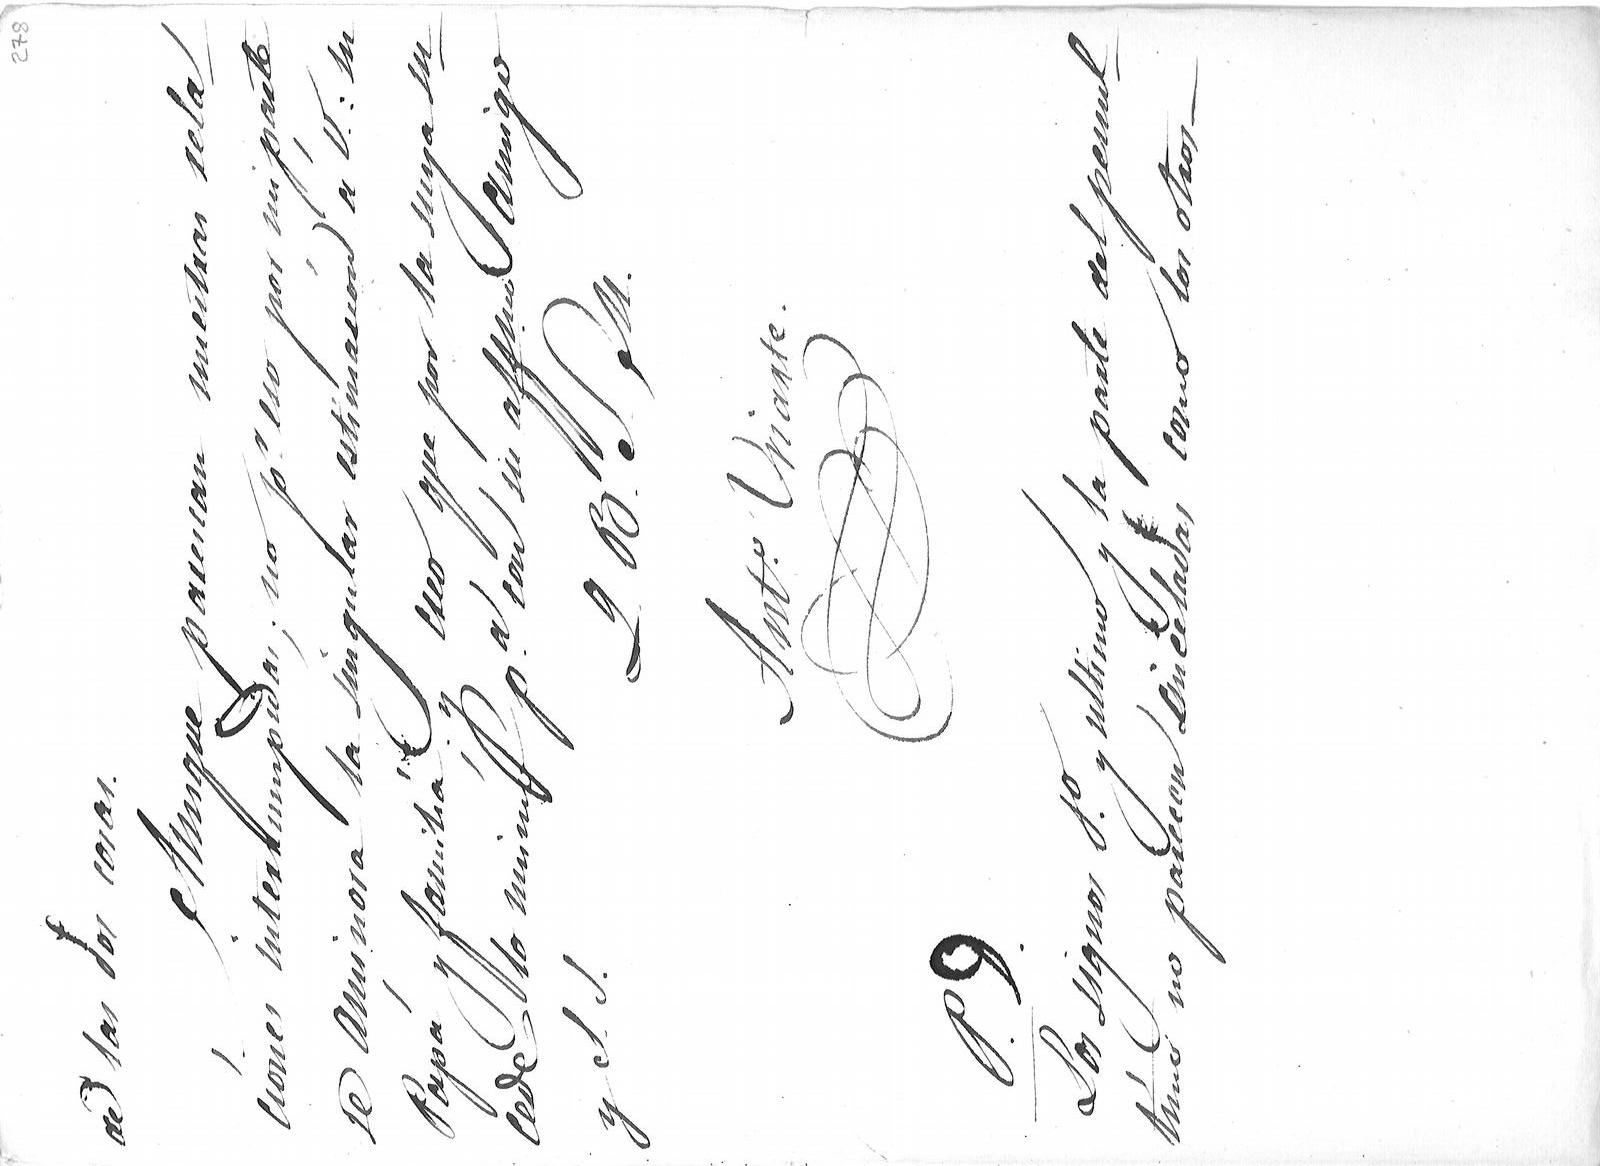 278
de las dos cosas.
Aunque parecian nuestras rela
ciones interrumpidas; no pr. eso por mi parte
se aminora la singular estimacion a V.: su
Papá y familia: y creo que por la suya su
cede lo mismo pa. con su affmo. amigo
y S. S. Q. B. S. M.
Anto. Uriarte.
P. D.
Los signos 1o. y ultimo y la parte del penul
timo no parecen sinceladas como los otros